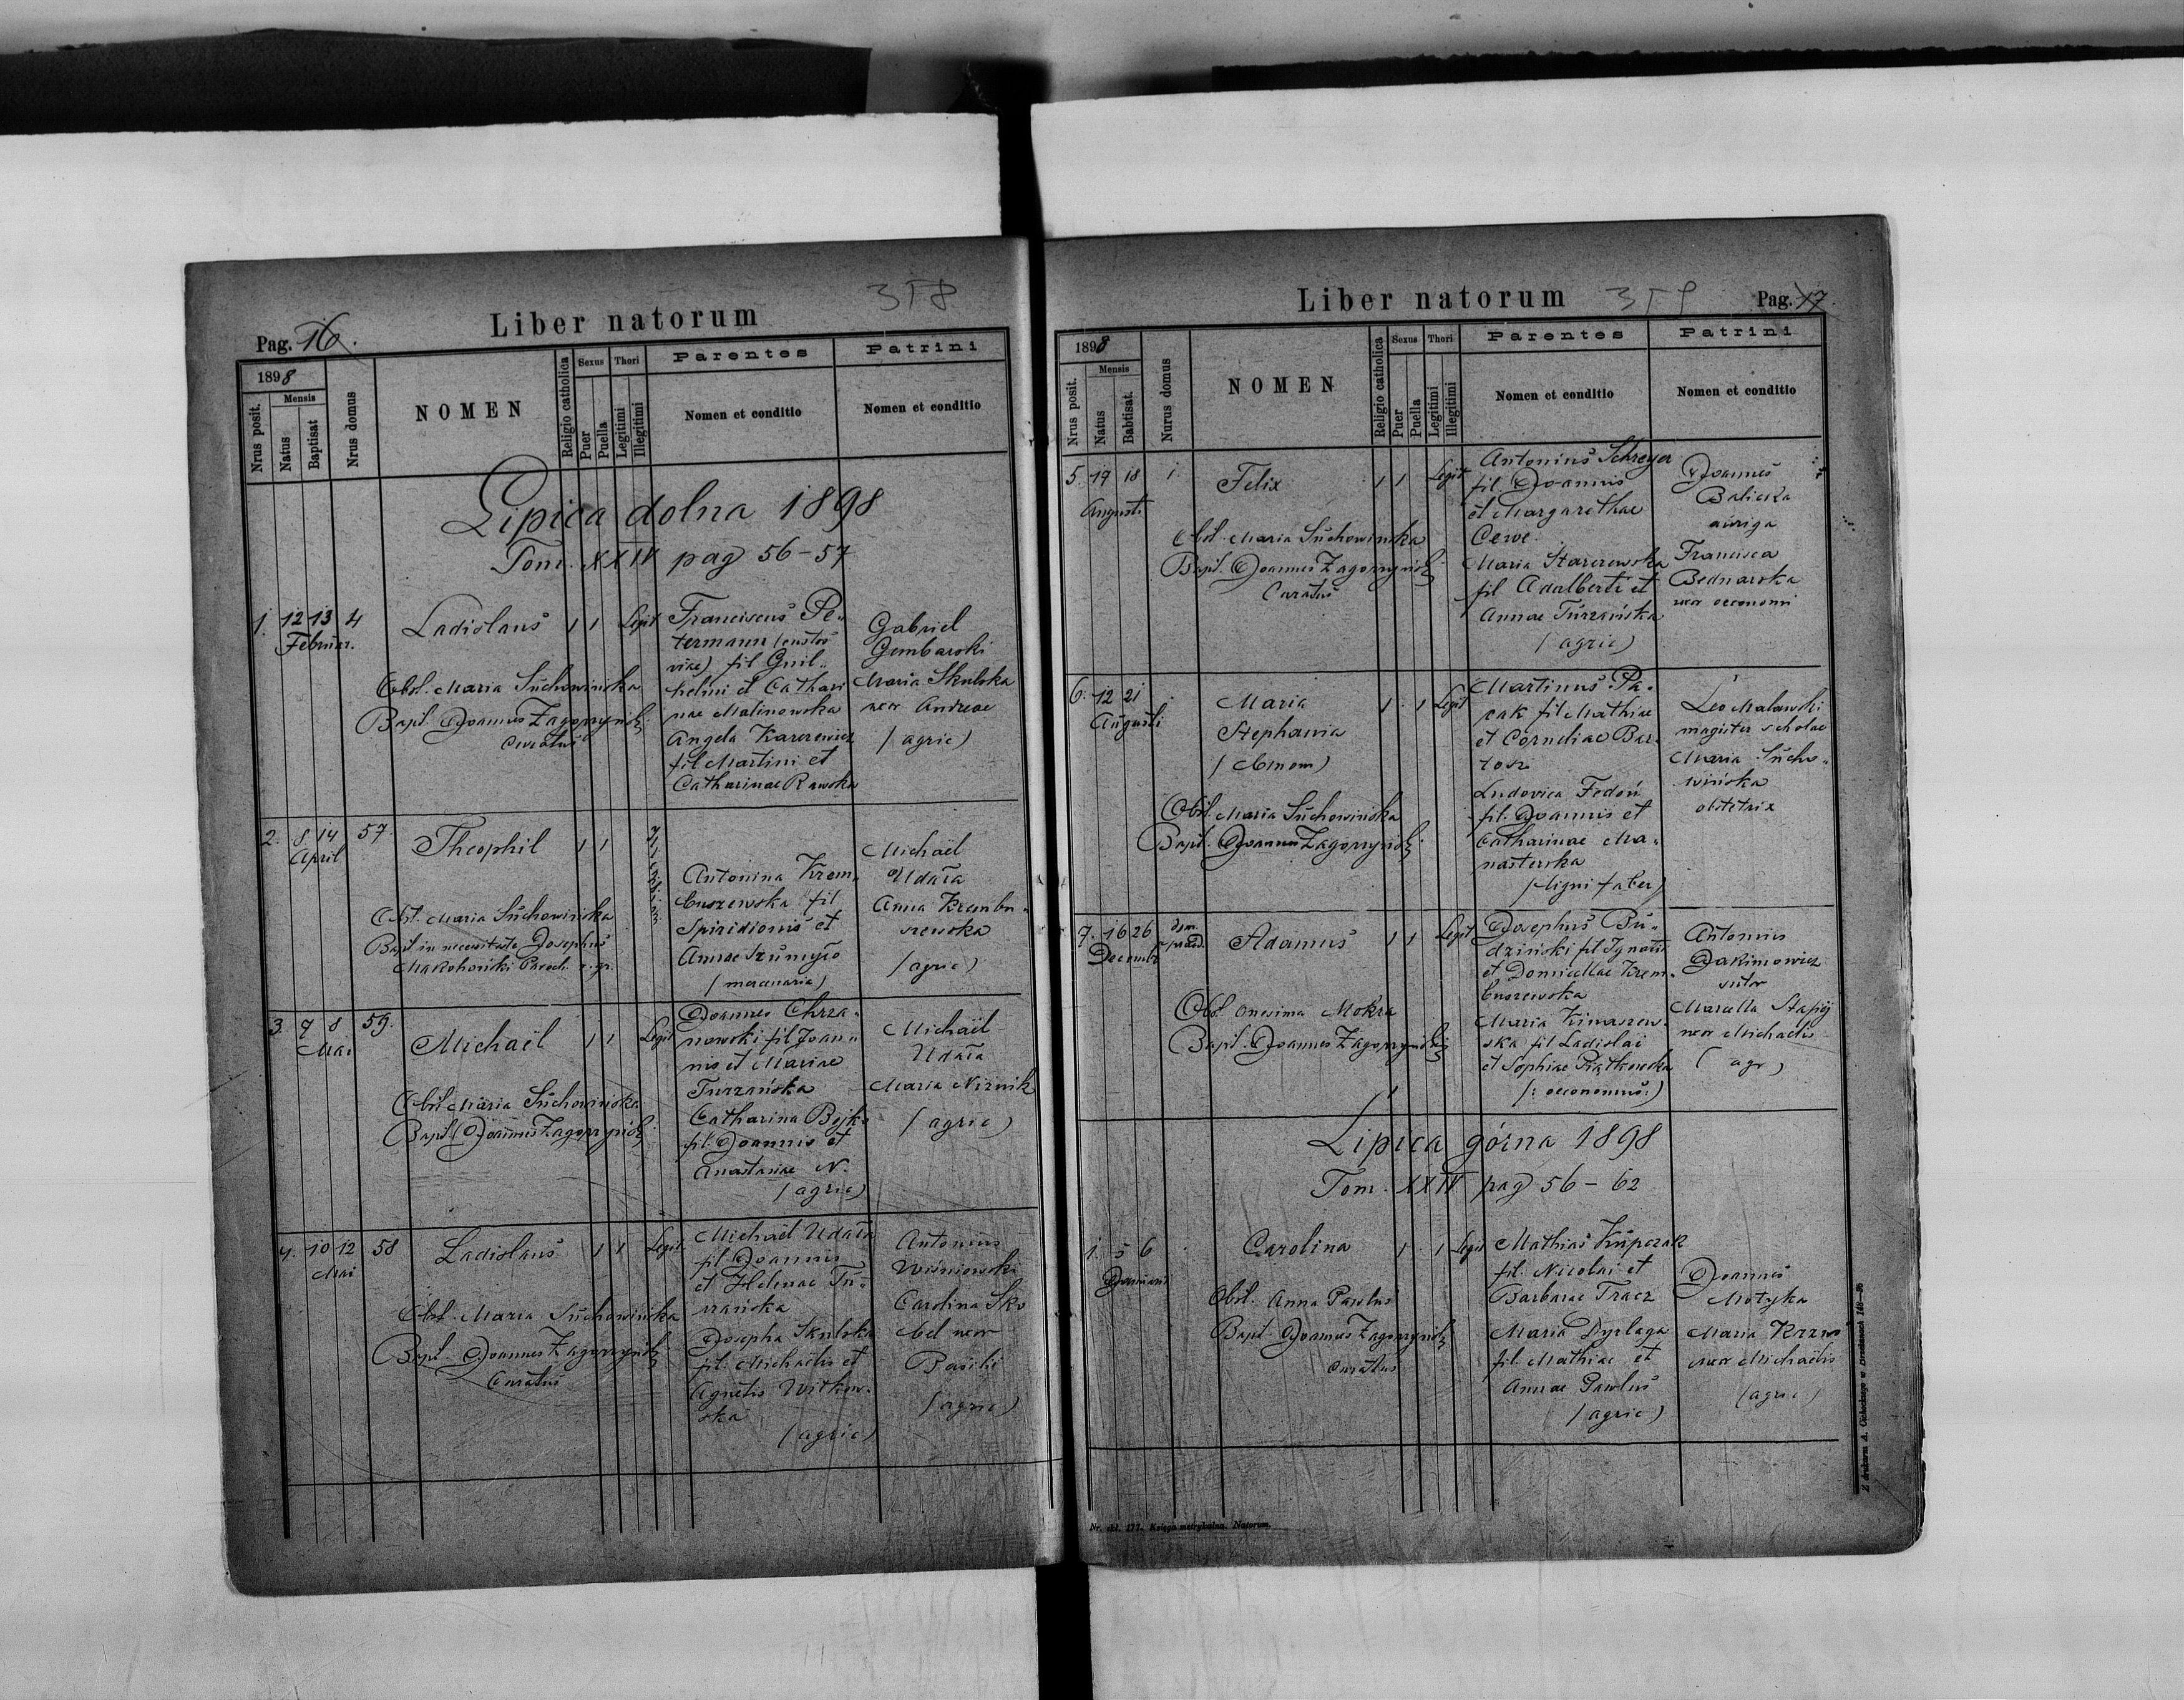 Liber natorum
358
Pag. 16.
1898
Nrus posit.
Mensis
Natus
Baptisat
Nrus domus
NOMEN
Religio catholica
Sexus
Puer
Puella
Thori
Legitimi
Illegitimi
Parentes
Nomen et conditio
Patrini
Nomen et conditio
Lipica dolna 1898
Tom. XXIV pag 56-57
1. 12 13 4
Februar.
Ladislaus 1 1 Legit
Obst. Maria Suchowińska
Bapt. Joannes Zagorzyński
Curatus
Franciscus Pe-
termann (custos
viae) fil Guil-
helmi et Cathari
nae Malinowska
Angela Karerewicz
fil Martini et
Catharinae Rawska
Gabriel
Gembarski
Maria Skulska
uxor Andreae
(agric)
2. 8 14 57.
April
Theophil 1 1
Obst. Maria Suchowińska
Bapt in necessitate Josephus
Makohoński Paroch. r. gr.
Antonina Krem-
buszewska fil
Spiridionis et
Annae
(mercenaria)
Michaël
Udała
Anna Krembu-
szewska
(agric)
3. 7 8 59.
Mai
Michaël 1 1 Legit
Obst Maria Suchowińska
Bapt. Joannes Zagorzyński
Joannes Chrza-
nowski fil Joan-
nis et Mariae
Turzańska
Catharina Bojko
fil. Joannis et
Anastasiae N.
(agric)
Michaël
Udała
Maria Niznik
(agric)
4. 10 12 58
Mai
Ladislaus 1 1 Legit
Obst. Maria Suchowińska
Bapt. Joannes Zagorzyński
Curatus
Michaël Udała
fil Joannis
et Helenae Tu-
rzańska
Josepha Skulska
fil. Michaëlis et
Agnetis Witkow-
ska
(agric)
Antonius
Wiśniowski
Carolina Sko
bel uxor
Basilii
(agric)
Liber natorum
359
Pag. 17.
1898
Nrus posit.
Mensis
Natus
Babtisat.
Nurus domus
NOMEN
Religio catholica
Sexus
Puer
Puella
Thori
Legitimi
Illegitimi
Parentes
Nomen et conditio
Patrini
Nomen et conditio
5. 17 18 1
Augusti
Felix 1 1 Legit
Obst. Maria Suchowińska
Bapt. Joannes Zagorzyński
Curatus
Antonius Schreyer
fil. Joannis
et Margarethae
Cerve
Maria Starerewska
fil Adalberti et
Annae Turzańska
(agric)
Joannes
Balicka
auriga
Francisca
Bednarska
uxor oeconomi
6. 12 21
Augusti
Maria 1 1 Legit
Stephania
(binom)
Obst. Maria Suchowińska
Bapt. Joannes Zagorzyński
Martinus Pa-
zak fil Mathiae
et Corneliae Bar-
tosz
Ludovica Fedoń
fil. Joannis et
Catharinae Ma-
nasterska
(ligni faber)
Leo Malawski
magister scholae
Maria Sucho-
wińska
obstetrix
7. 16 26 dom. praed.
Decembr
Adamus 1 1 Legit
Obst. Onesima Mokra
Bapt. Joannes Zagorzyński
Josephus Bu-
dziński fil Ignatii
et Domicellae Krem-
buszewska
Maria Kinaszew-
ska fil Ladislai
et Sophiae Piątkowska
(: oeconomus:)
Antonius
Jakimowicz
sutor
Marcella Stapij
uxor Michaëlis
(agr)
Lipica górna 1898
Tom. XXIV pag 56 - 62
1. 5 6
Januarii
Carolina 1 1 Legit
Obst. Anna Pawlus
Bapt Joannes Zagorzyński
curatus
Mathias Kupczak
fil. Nicolai et
Barbarae Tracz
Maria Dyrlaga
fil. Mathiae et
Annae Pawlus
(agric)
Joannes
Motyka
Maria Krzus
uxor Michaëlis
(agric)
Nr. skł. 177. Księga metrykalna. Natorum.